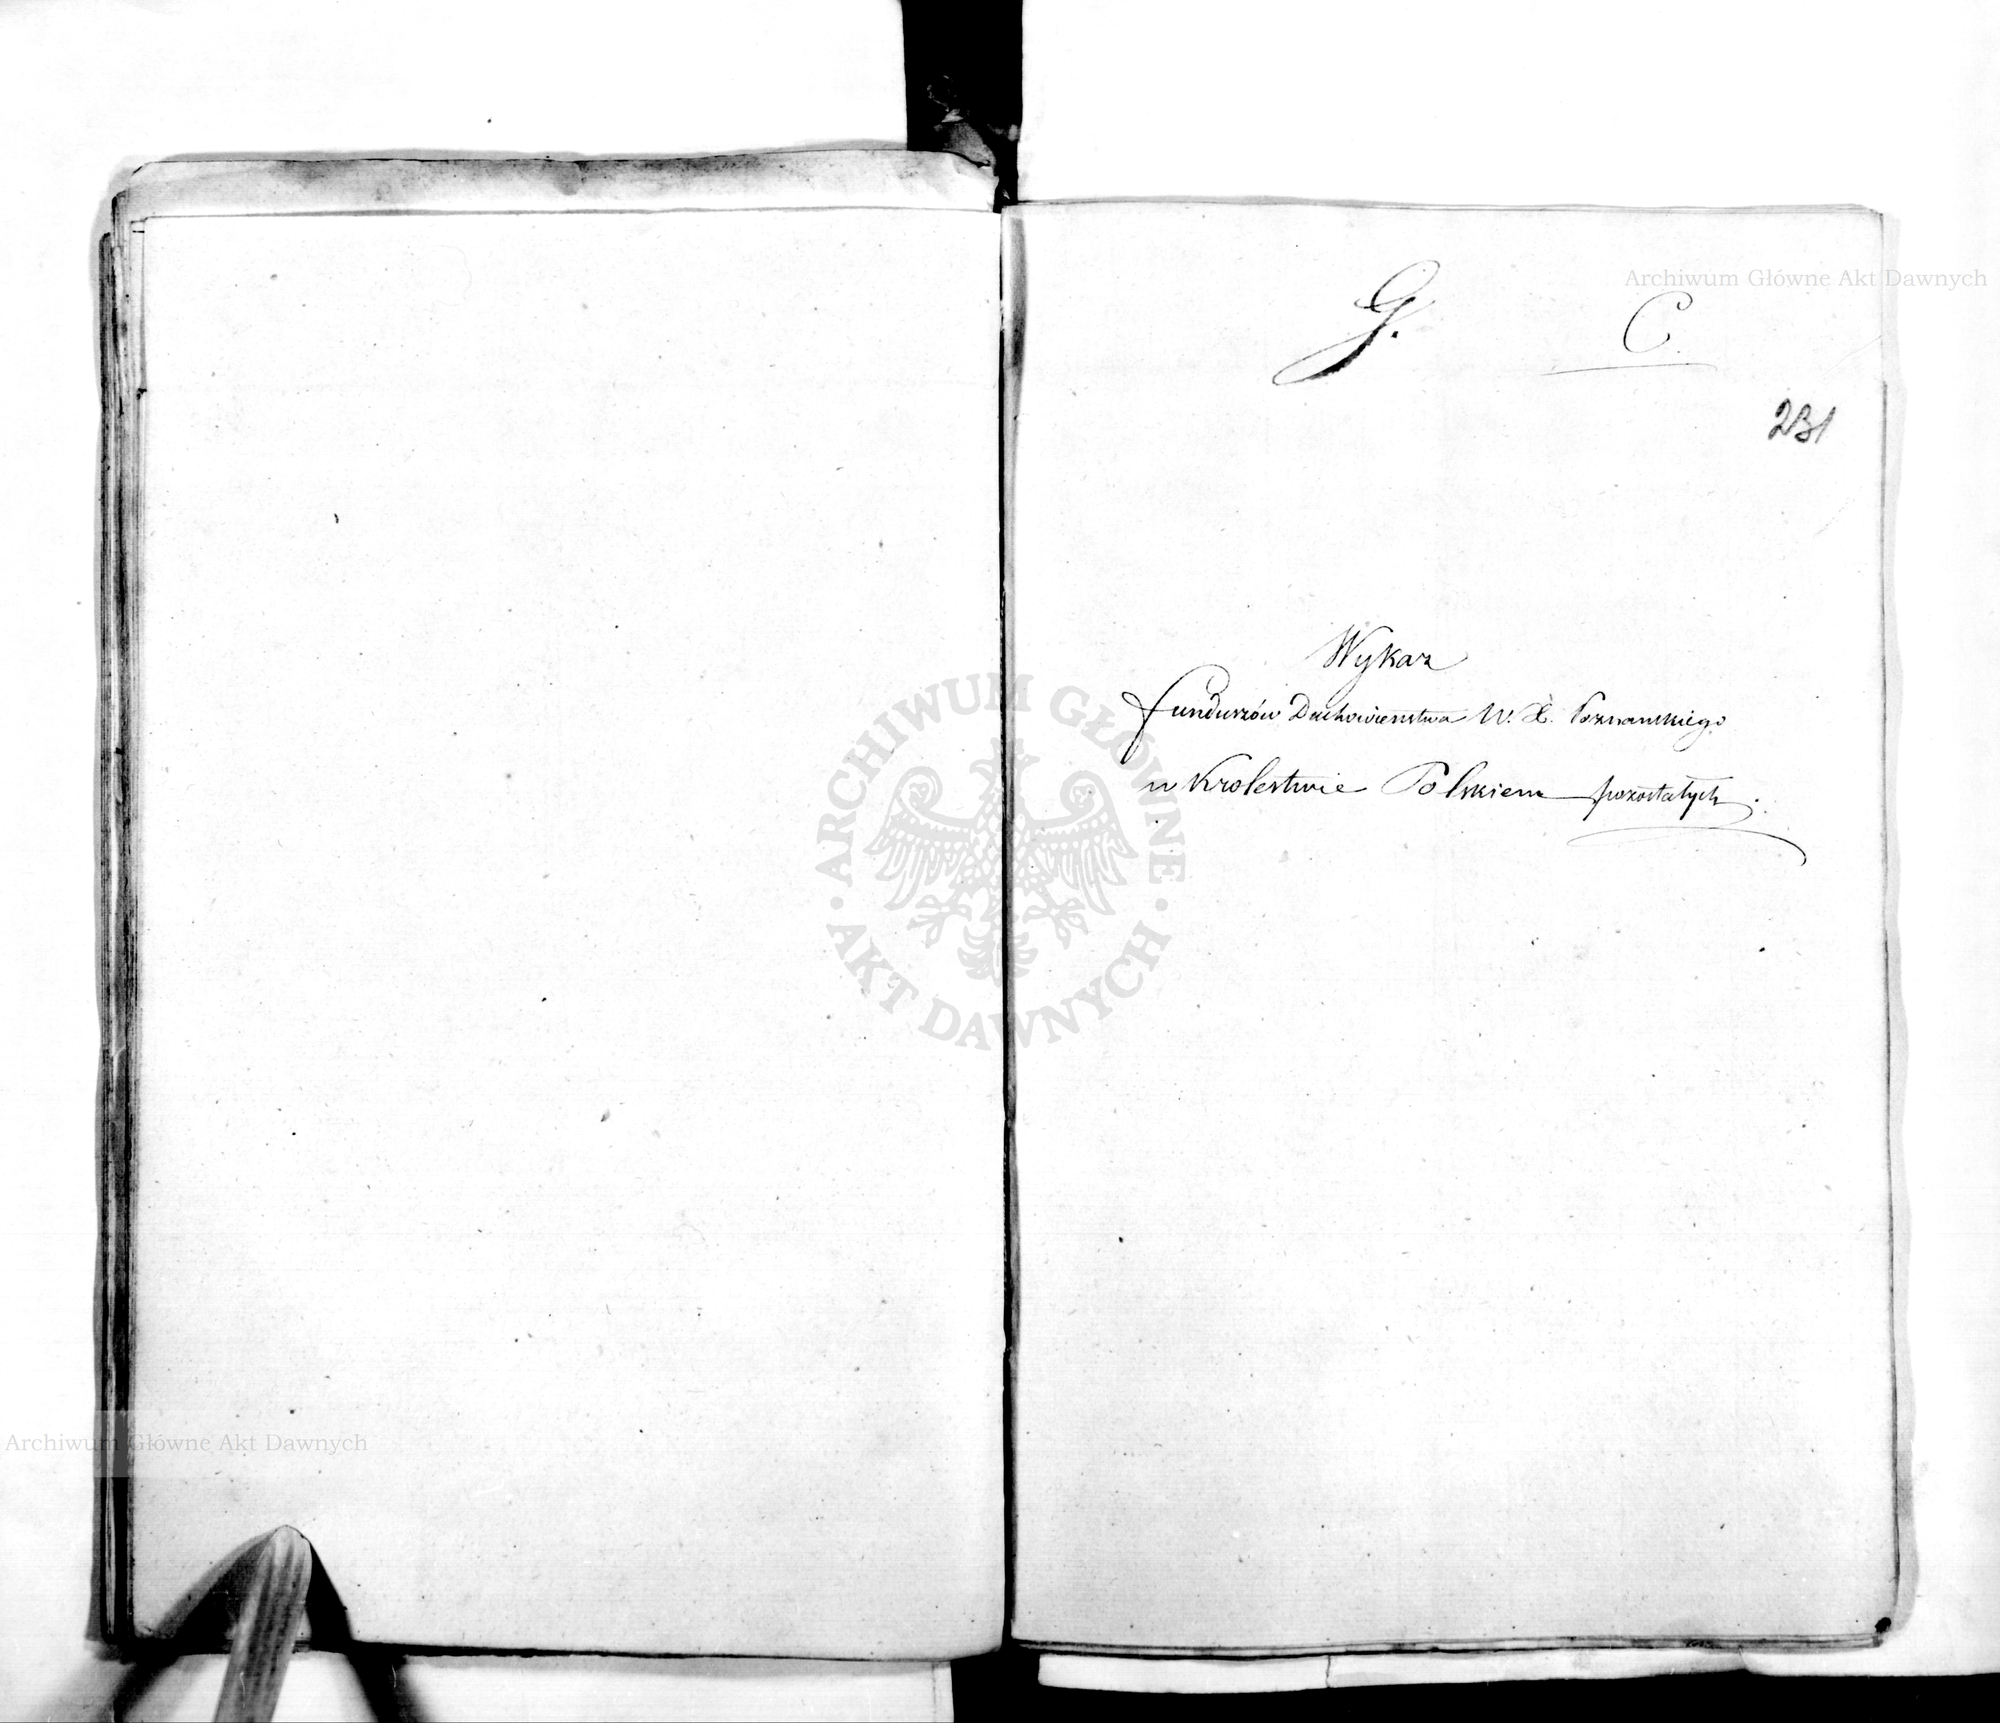 Archiwum Główne Akt Dawnych
G. C.
231
Wykaz
funduszów Duchowieństwa W. X. Poznańskiego
w Krolestwie Polskiem pozostałych.
ARCHIWUM GŁÓWNE
· AKT DAWNYCH ·
Archiwum Główne Akt Dawnych